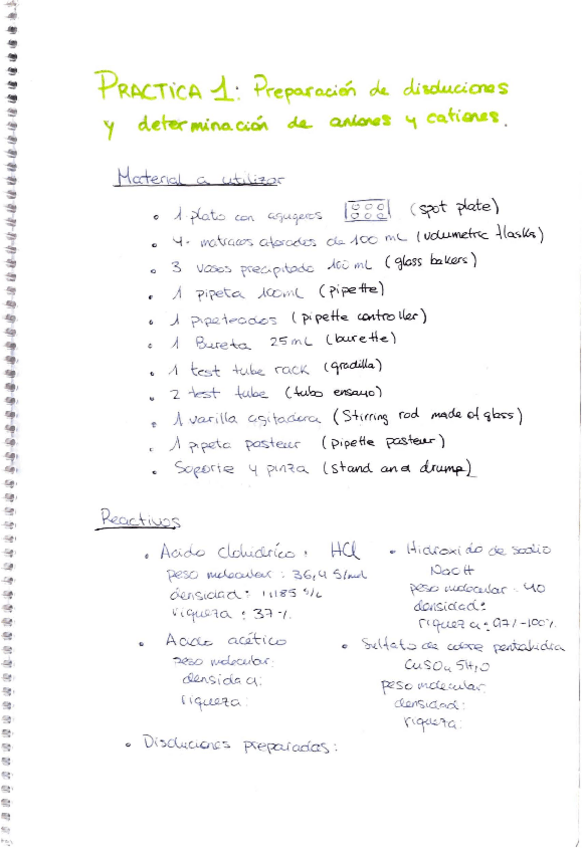 PRACTICA 1: Preparación de disduciones
y determinación de aniones y cationes.
Material a utilizar
• 1 plato con agugeros (spot plate)
• 4 matraces aforados de 100 mL (volumetric flasks)
• 3 vasos precipitado 100 mL (glass bakers)
• 1 pipeta 100mL (pipette)
• 1 pipeteados (pipette controller)
• 1 Bureta 25mL (burette)
• 1 test tube rack (gradilla)
• 2 test tube (tubo ensayo)
• 1 varilla agitadora (Stirring rod made of glass)
• 1 pipeta pasteur (pipette pasteur)
• Soporte y pinza (stand and
Reactivos
• Acido clohidrico, HCl
peso molecular: 36,4 g/mol
densidad: 1,185
riqueza: 37%
• Hidroxido de sodio
NaOH
peso molecular: 40
densidad:
riqueza: 97/-100%
• Acido acético
peso molecular:
densidad:
riqueza:
• Sulfato de cobre pentahidra
CuSO4 5H2O
peso molecular:
densidad:
riqueza:
• Disduciones preparadas: